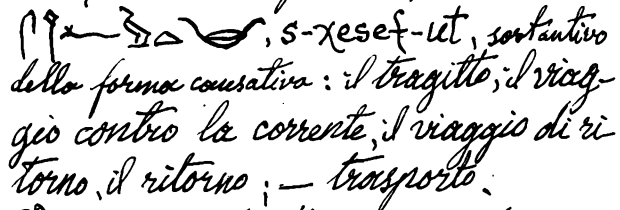 , s-χesef-ut, sostantivo
della forma causativa: il tragitto, il viag-
gio contro la corrente, il viaggio di ri-
torno, il ritorno; — trasporto.